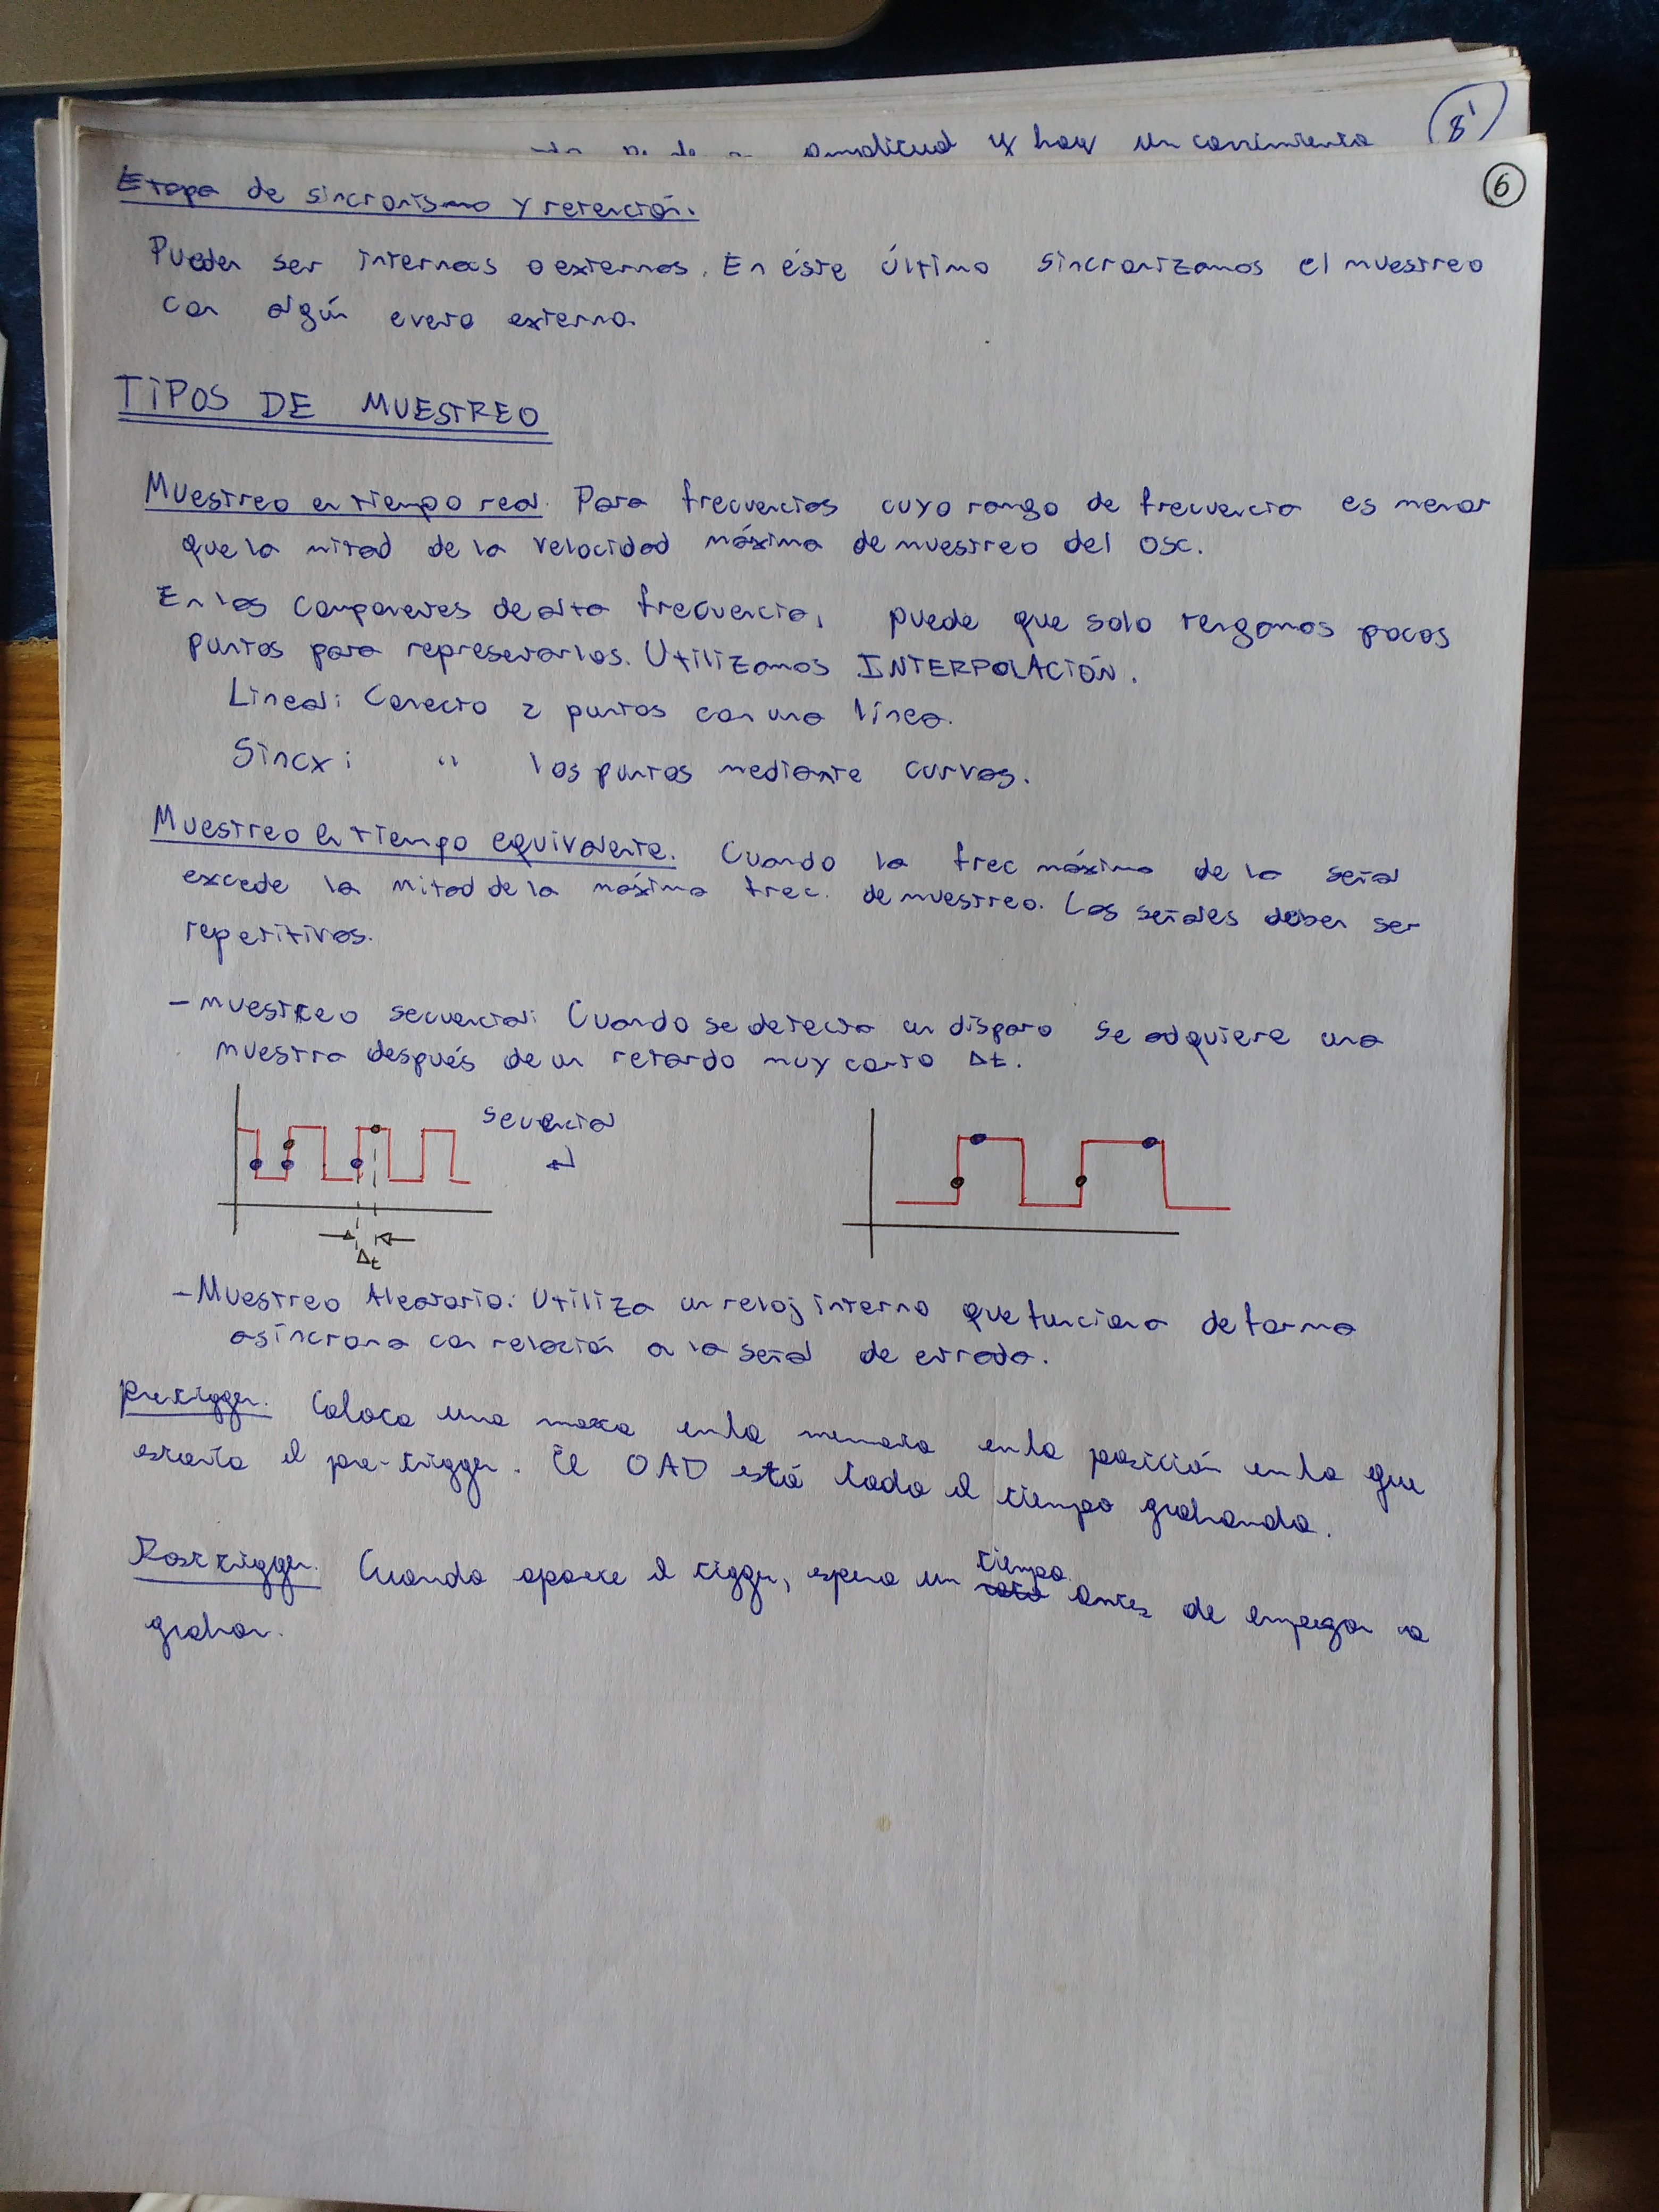 amplitud y hay un corrimiento
8'
6
Etapa de sincronismo y retención.
Pueden ser internas o externas. En éste último sincronizamos el muestreo
con algún evento externo
TIPOS DE MUESTREO
Muestreo en tiempo real. Para frecuencias cuyo rango de frecuencia es menor
que la mitad de la velocidad máxima de muestreo del osc.
En los componentes de alta frecuencia, puede que solo tengamos pocos
puntos para representarlos. Utilizamos INTERPOLACIÓN.
Lineal: Conecto 2 puntos con una línea.
Sincx: " los puntos mediante curvas.
Muestreo en tiempo equivalente. Cuando la frec máxima de la señal
excede la mitad de la máxima frec. de muestreo. Las señales deben ser
repetitivas.
- muestreo secuencial: Cuando se detecta un disparo se adquiere una
muestra después de un retardo muy corto Δt.
secuencial
Δt
- Muestreo Aleatorio: Utiliza un reloj interno que funciona de forma
asíncrona con relación a la señal de entrada.
Pretrigger. Coloca una marca en la memoria en la posición en la que
estaría el pre-trigger. El OAD está todo el tiempo grabando.
Postrigger. Cuando aparece el trigger, espera un tiempo antes de empezar a
grabar.